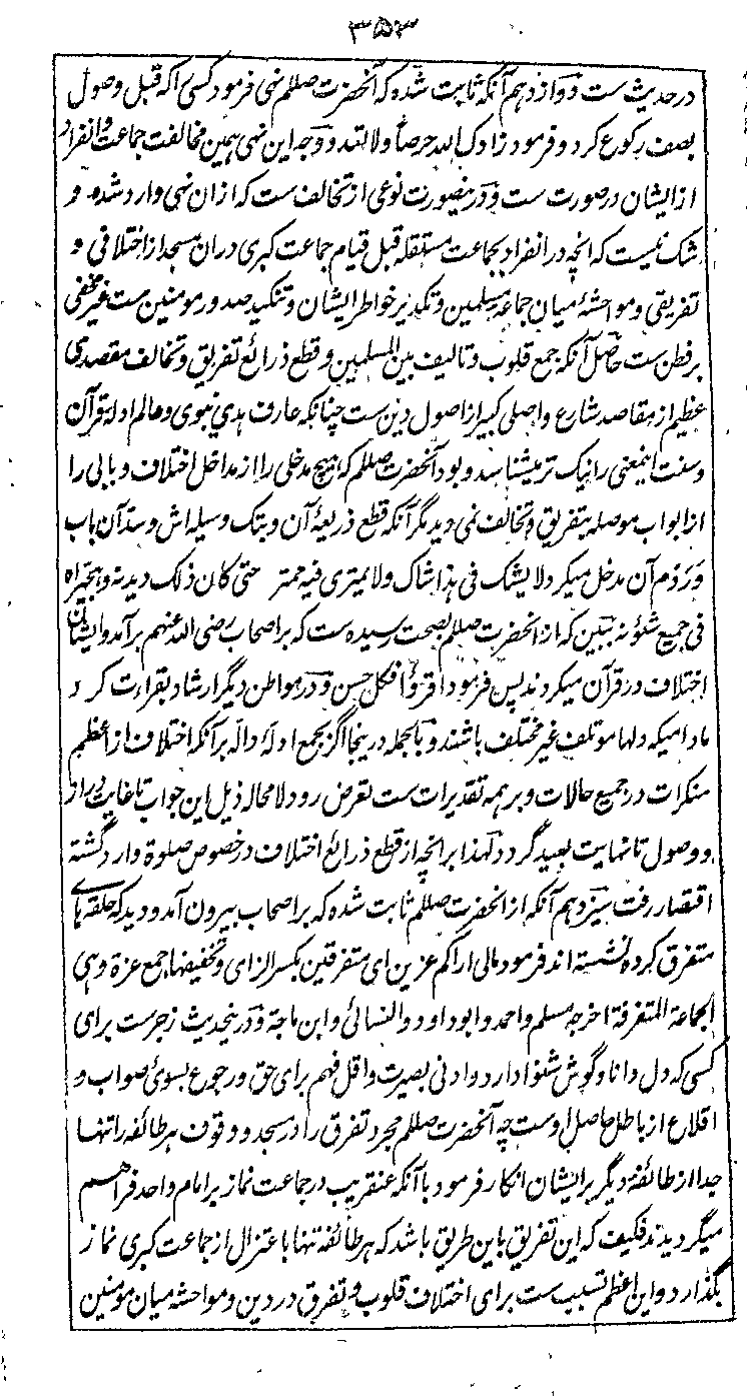 ۳۵۳
در حدیث ست و دوازدهم آنکه ثابت شده که آنحضرت صللم نهی فرمود کسی را که قبل وصول
بصف رکوع کرد و فرمود زادک الله حرصاً ولا تعد و وجه این نهی همین مخالفت جماعت و انفراد
از ایشان در صورت ست و درینصورت نوعی از تخالف ست که ازان نهی وارد شده و
شک نیست که انچه در انفراد بجماعت مستقله قبل قیام جماعت کبری دران مسجد از اختلافی و
تفریقی و مواحشهٔ میان جماعهٔ مسلمین و تکدیر خواطر ایشان و تنکید صدور مومنین ست غیر مخفی
بر فطن ست حاصل آنکه جمع قلوب و تالیف بین المسلمین و قطع ذرائع تفریق و تخالف مقصدی
عظیم از مقاصد شارع و اصلی کبیر از اصول دین ست چنانکه عارف هدی نبوی و عالم ادلهٔ قرآن
و سنت اینمعنی را نیک تر میشناسد و بود آنحضرت صللم که هیچ مدخلی را از مداخل اختلاف و بابی را
از ابواب موصله بتفریق و تخالف نمی دید مگر آنکه قطع ذریعهٔ آن و هتک وسیله اش و سد آن باب
و ردم آن مدخل میکرد لا یشک فی هذا شاک ولا یمتری فیه ممتر حتی کان ذلک دیدنه و هجیراه
فی جمیع شئونه ببین که از آنحضرت صللم بصحت رسیده ست که بر اصحاب رضی الله عنهم برآمد و ایشان
اختلاف در قرآن میکردند پس فرمود اقرؤا فکل حسن و در مواطن دیگر ارشاد بقراءت کرد
مادامیکه دلها موتلف غیر مختلف باشند و بالجمله درینجا اگر بجمع ادلهٔ داله بر آنکه اختلاف از اعظم
منکرات در جمیع حالات و بر همه تقدیرات ست تعرض رود لا محاله ذیل این جواب تا غایت دراز
و وصول تا نهایت بعید گردد لهذا بر انچه از قطع ذرائع اختلاف در خصوص صلوة وارد گشته
اقتصار رفت سیزدهم آنکه از آنحضرت صللم ثابت شده که بر اصحاب بیرون آمد و دید که حلقه های
متفرق کرده نشسته اند فرمود مالی اراکم عزین ای متفرقین بکسر الزای و تخفیفها جمع عزة و هی
الجماعة المتفرقة اخرجه مسلم و احمد و ابوداود و النسائی و ابن ماجة و درینحدیث زجرست برای
کسی که دل دانا و گوش شنوا دارد و ادنی بصیرت و اقل فهم برای حق و رجوع بسوی صواب و
اقلاع از باطل حاصل اوست چه آنحضرت صللم مجرد تفرق را در مسجد و وقوف هر طائفه را تنها
جدا از طائفهٔ دیگر بر ایشان انکار فرمود با آنکه عنقریب در جماعت نماز بر امام واحد فراهم
میگردیدند فکیف که این تفریق باین طریق باشد که هر طائفه تنها باعتزال از جماعت کبری نماز
بگذارد و این اعظم تسبیب ست برای اختلاف قلوب و تفرق در دین و مواحشهٔ میان مومنین